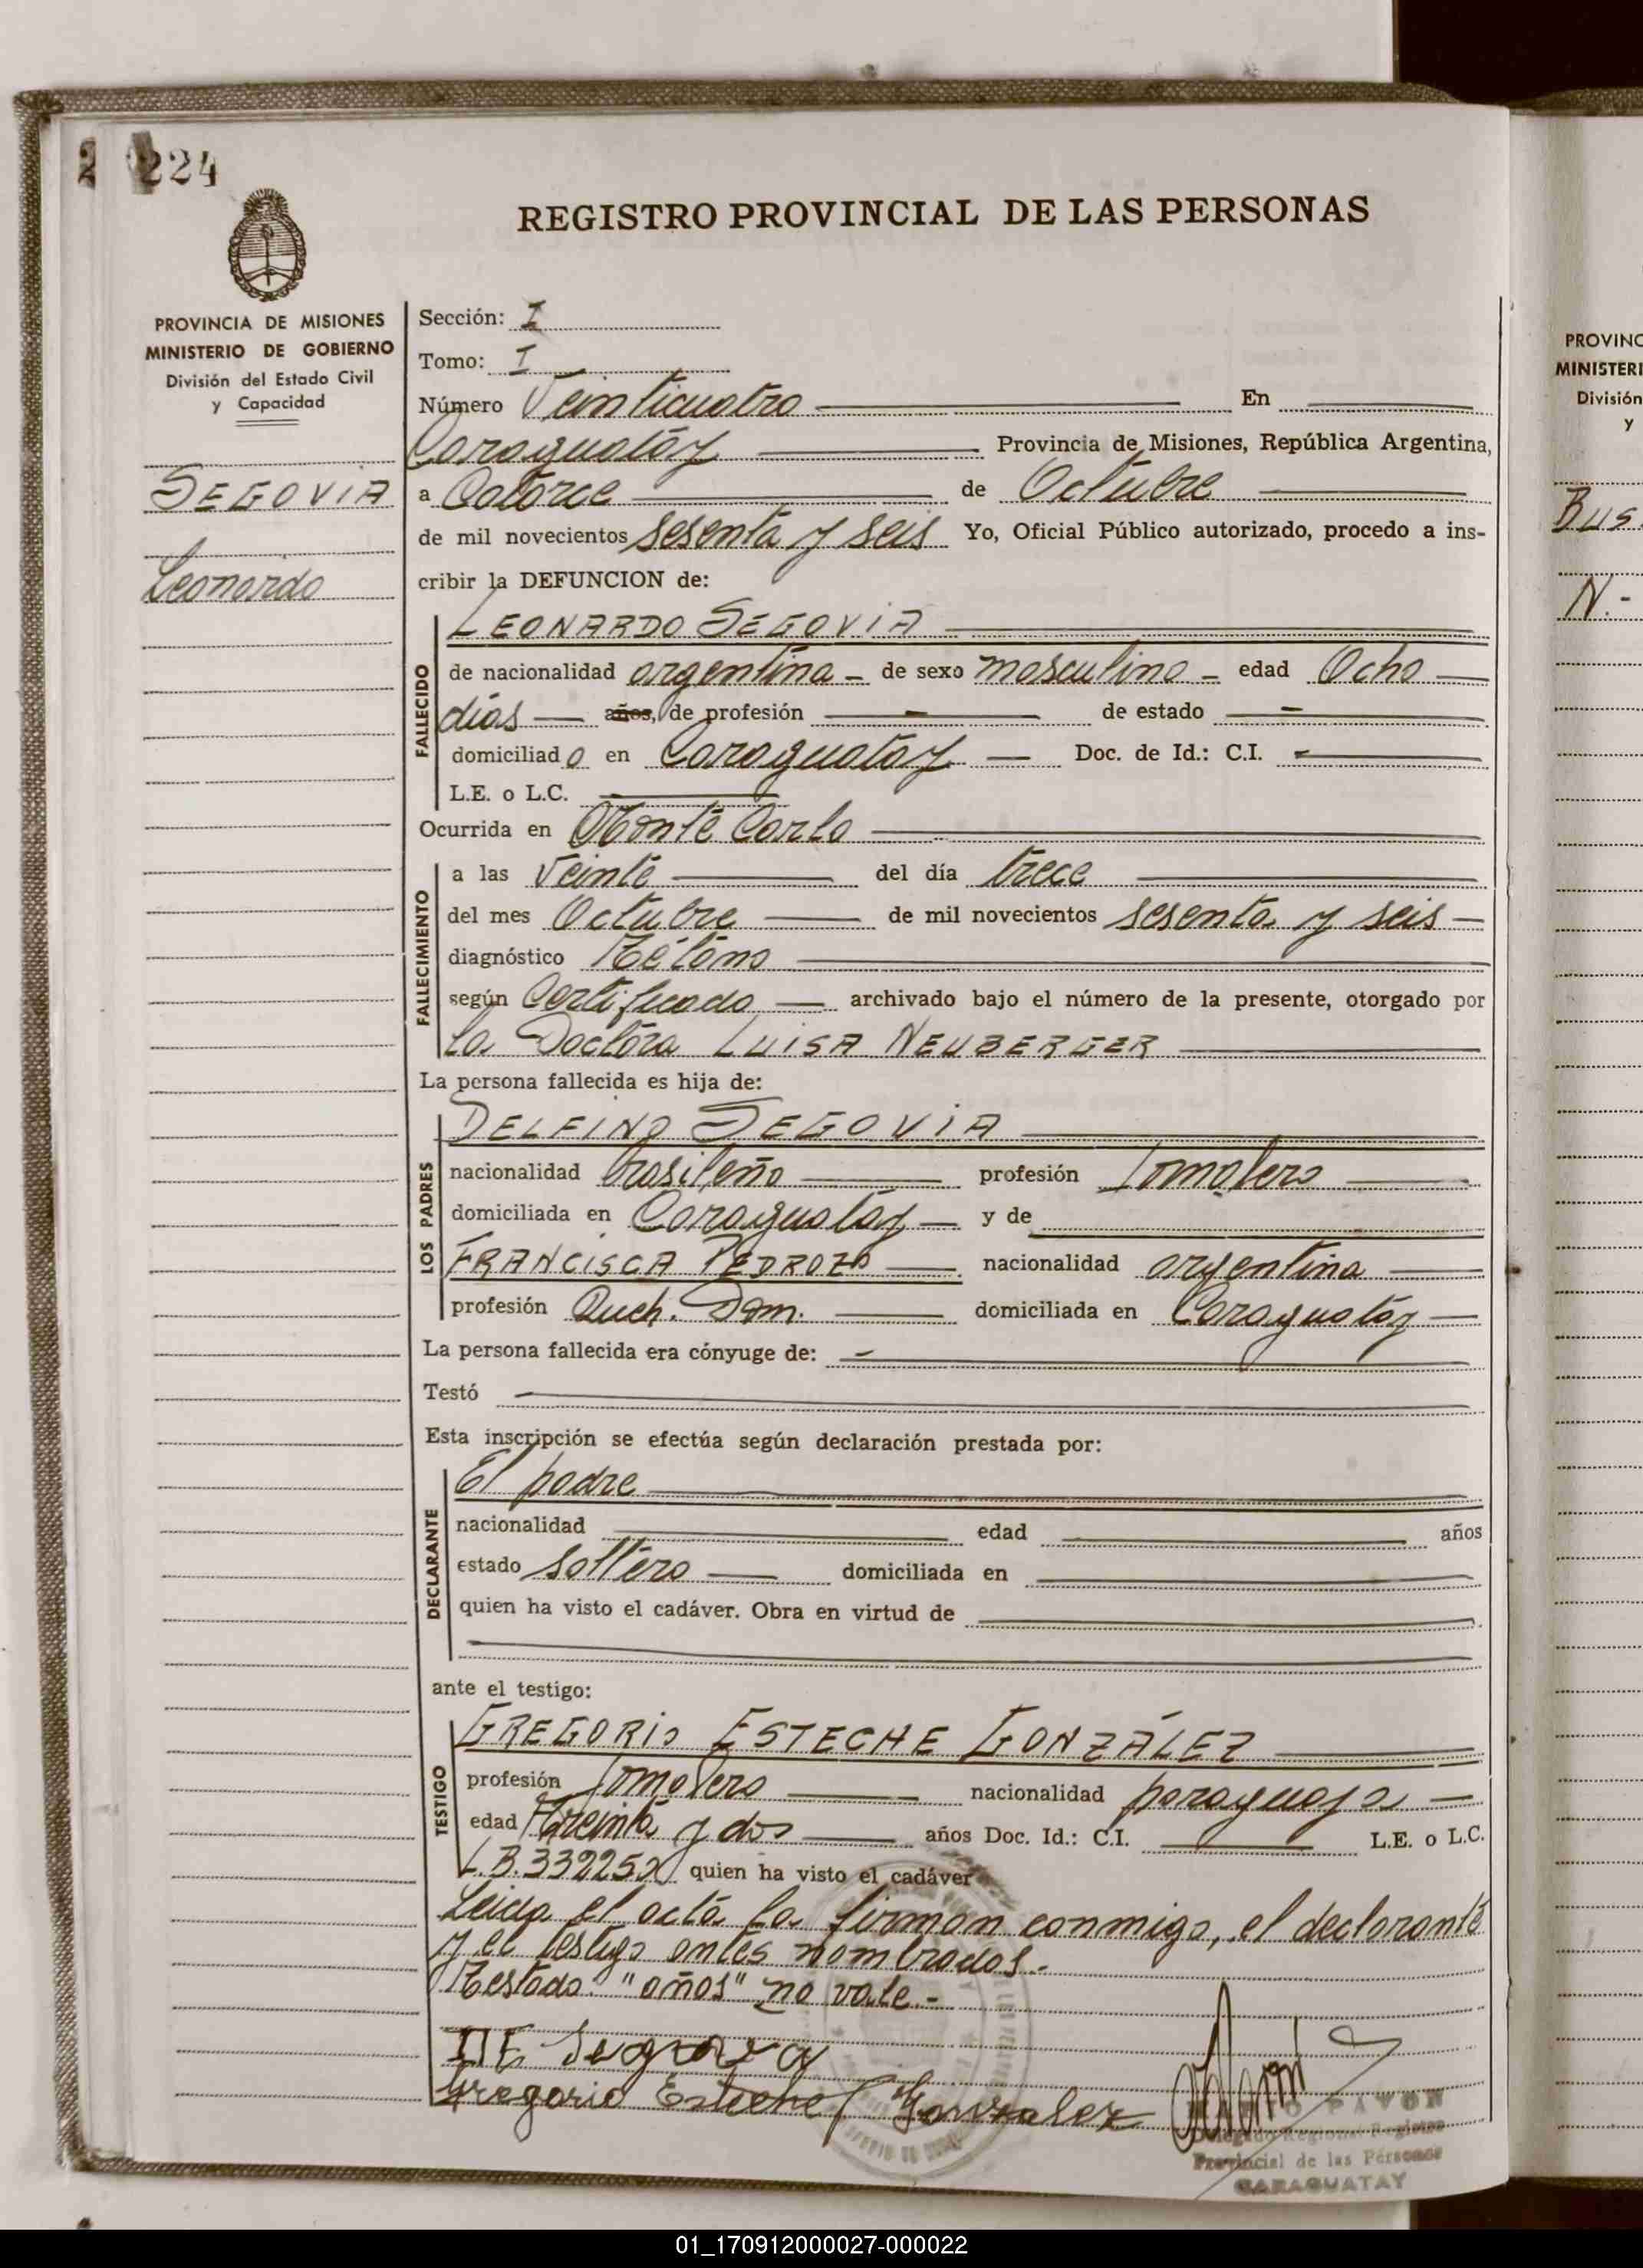 224
REGISTRO PROVINCIAL DE LAS PERSONAS
PROVINCIA DE MISIONES
MINISTERIO DE GOBIERNO
División del Estado Civil
y Capacidad
SEGOVIA
Leonardo
Sección: I
Tomo: I
Número Veinticuatro En
Caraguatáy Provincia de Misiones, República Argentina,
a Catorce de Octubre
de mil novecientos sesenta y seis Yo, Oficial Público autorizado, procedo a ins-
cribir la DEFUNCION de:
FALLECIDO
LEONARDO SEGOVIA
de nacionalidad argentina - de sexo masculino - edad Ocho
días años, de profesión - de estado -
domiciliado en Caraguatay Doc. de Id.: C.I. -
L.E. o L.C.
Ocurrida en Monte Carlo
FALLECIMIENTO
a las Veinte del día trece
del mes Octubre de mil novecientos sesenta y seis
diagnóstico Tétano
según Certificado archivado bajo el número de la presente, otorgado por
la Doctora LUISA NEUBERGER
La persona fallecida es hija de:
LOS PADRES
DELFINO SEGOVIA
nacionalidad brasileño profesión Jornalero
domiciliada en Caraguatáy y de
FRANCISCA PEDROZO nacionalidad argentina
profesión Queh. Dom. domiciliada en Caraguatáy
La persona fallecida era cónyuge de: -
Testó
Esta inscripción se efectúa según declaración prestada por:
DECLARANTE
El padre
nacionalidad edad años
estado soltero domiciliada en
quien ha visto el cadáver. Obra en virtud de
ante el testigo:
TESTIGO
GREGORIO ESTECHE GONZÁLEZ
profesión Jornalero nacionalidad paraguaya
edad Treinta y dos años Doc. Id.: C.I. L.E. o L.C.
L.B. quien ha visto el cadáver
Leida el acta la firman conmigo, el declarante
y el testigo antes nombrados.-
Testado: "años" no vale.-
Segovia
Gregorio Esteche Gonzalez
PAVON
Delegado Regional Registro
Provincial de las Personas
CARAGUATAY
PROVINC
MINISTERI
División
y
Bus
N.-
01_170912000027-000022